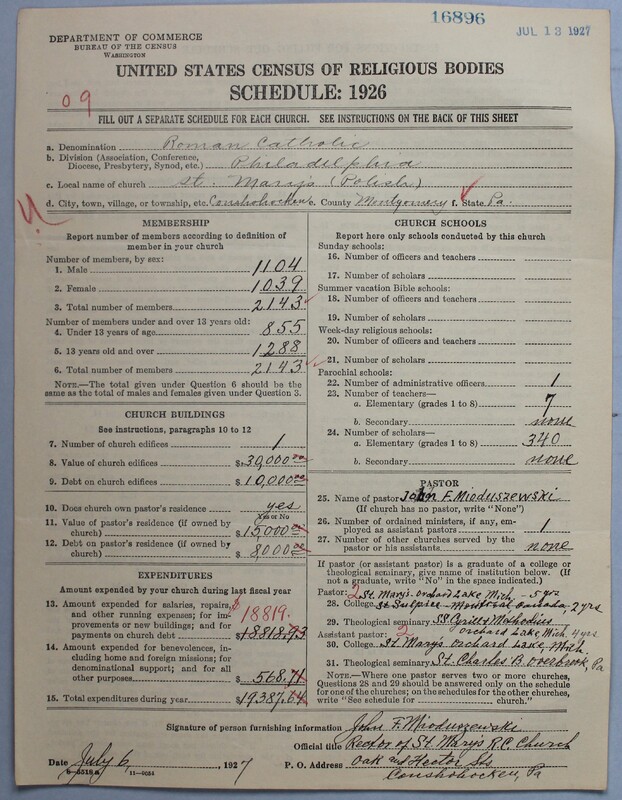 16896
JUL 13 1927
DEPARTMENT OF COMMERCE
BUREAU OF THE CENSUS
WASHINGTON
UNITED STATES CENSUS OF RELIGIOUS BODIES
SCHEDULE: 1926
09
FILL OUT A SEPARATE SCHEDULE FOR EACH CHURCH. SEE INSTRUCTIONS ON THE BACK OF THIS SHEET
a. Denomination Roman Catholic
b. Division (Association, Conference, Diocese, Presbytery, Synod, etc.) Philadelphia
c. Local name of church St. Mary's (Polish)
d. City, town, village, or township, etc. Conshohocken e. County Montgomery f. State Pa.
MEMBERSHIP
Report number of members according to definition of
member in your church
Number of members, by sex:
1. Male 1104
2. Female 1039
3. Total number of members 2143
Number of members under and over 13 years old:
4. Under 13 years of age 855
5. 13 years old and over 1288
6. Total number of members 2143
NOTE.—The total given under Question 6 should be
same as the total of males and females given under Question 3.
CHURCH BUILDINGS
See instructions, paragraphs 10 to 12
7. Number of church edifices 1
8. Value of church edifices $30,000.00
9. Debt on church edifices $10,000.00
10. Does church own pastor's residence yes
Yes or No
11. Value of pastor's residence (if owned by
church) $15,000.00
12. Debt on pastor's residence (if owned by
church) $8,000.00
EXPENDITURES
Amount expended by your church during last fiscal year
13. Amount expended for salaries, repairs,
and other running expenses; for im-
provements or new buildings; and for
payments on church debt $18,818.93
$18819.
14. Amount expended for benevolences, in-
cluding home and foreign missions; for
denominational support; and for all
other purposes $568.71
15. Total expenditures during year $19,387.64
CHURCH SCHOOLS
Report here only schools conducted by this church
Sunday schools:
16. Number of officers and teachers
17. Number of scholars
Summer vacation Bible schools:
18. Number of officers and teachers
19. Number of scholars
Week-day religious schools:
20. Number of officers and teachers
21. Number of scholars
Parochial schools:
22. Number of administrative officers 1
23. Number of teachers—
a. Elementary (grades 1 to 8) 7
b. Secondary none
24. Number of scholars—
a. Elementary (grades 1 to 8) 340
b. Secondary none
PASTOR
25. Name of pastor John F. Mioduszewski
(If church has no pastor, write "None")
26. Number of ordained ministers, if any, em-
ployed as assistant pastors 1
27. Number of other churches served by the
pastor or his assistants none
If pastor (or assistant pastor) is a graduate of a college or
theological seminary, give name of institution below. (If
not a graduate, write "No" in the space indicated.)
Pastor: 2 St. Mary's Orchard Lake Mich. - 5 yrs
28. College St Sulpice - Montreal Canada, 2 yrs
29. Theological seminary SS Cyrill & Methodius
Assistant pastor: 2 Orchard Lake, Mich. 4 yrs
30. College St. Mary's Orchard Lake, Mich.
31. Theological seminary St. Charles B. Overbrook, Pa
NOTE.—Where one pastor serves two or more churches,
Questions 28 and 29 should be answered only on the schedule
for one of the churches; on the schedules for the other churches,
write "See schedule for church."
Signature of person furnishing information John F. Mioduszewski
Official title Rector of St. Mary's R.C. Church
Date July 6, 1927 P. O. Address Oak and Hector Sts
Conshohocken, Pa
11-9084